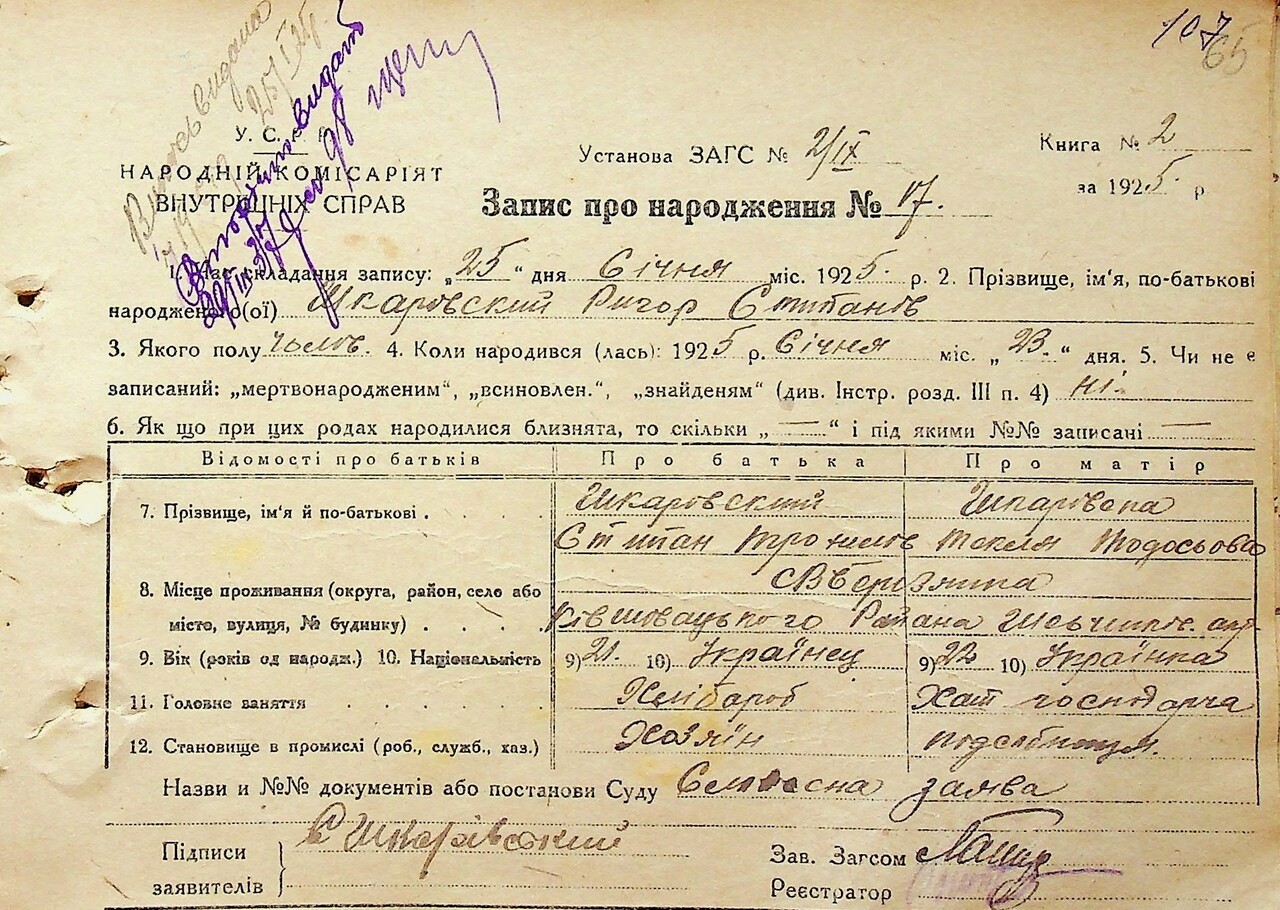 107
65
Випись видана
У. С. Р. Р.
НАРОДНІЙ КОМІСАРІЯТ
ВНУТРЕШНІХ СПРАВ
Установа ЗАГС № 2/IX
Книга № 2
за 1925 р
Запис про народження № 17.
1. Час складання запису: „25“ дня Січня міс. 1925. р. 2. Прізвище, ім'я, по-батькові
народженого(ої) Шкаровский Ригор Стипанов
3. Якого полу чолов. 4. Коли народився (лась): 1925 р. Січня міс. „23.“ дня. 5. Чи не є
записаний: „мертвонародженим“, „всиновлен.“, „знайденям“ (див. Інстр. розд. III п. 4) ні.
6. Як що при цих родах народилися близнята, то скільки „—“ і під якими №№ записані —
Відомості про батьків Про батька Про матір
7. Прізвище, ім'я й по-батькові . Шкаровский Шкаровска
Стипан Трохимов Текля Тодосьова
с Вберизянка
8. Місце проживання (округа, район, село або
місто, вулиця, № будинку) . . . . Ківшовацького Района
9. Вік (років од народж.) 10. Національність 9) 21. 10) Українец 9) 22 10) Українка
11. Головне заняття . . . . . . Хлібароб Хат господарча
12. Становище в промислі (роб., служб., хаз.) Хозяїн
Назви и №№ документів або постанови Суду Словесна заява
Підписи
заявителів
С Шкарівский
Зав. Загсом
Реєстратор